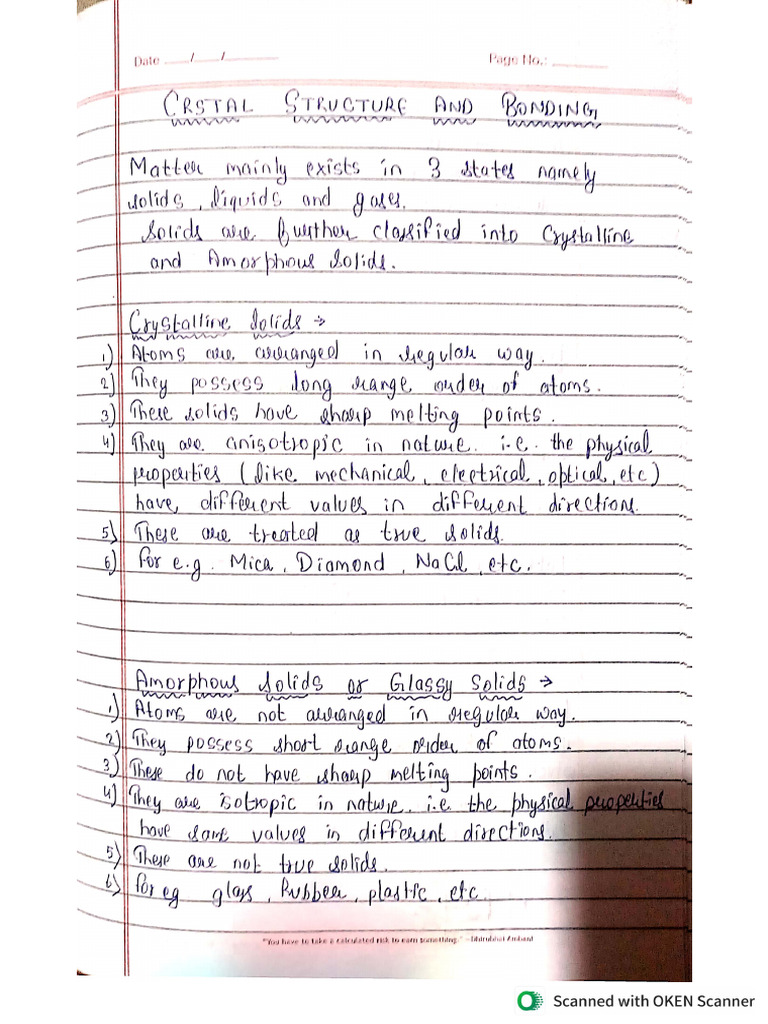 Date ___/___/______ Page No.: ______
CRSTAL STRUCTURE AND BONDING
Matter mainly exists in 3 states namely
solids, liquids and gases.
Solids are further classified into Crystalline
and Amorphous Solids.
Crystalline Solids →
1) Atoms are arranged in regular way.
2) They possess long range order of atoms.
3) These solids have sharp melting points.
4) They are anisotropic in nature. i.e. the physical
properties (like mechanical, electrical, optical, etc)
have different values in different directions.
5) These are treated as true solids.
6) For e.g. Mica, Diamond, NaCl, etc.
Amorphous Solids or Glassy Solids →
1) Atoms are not arranged in regular way.
2) They possess short range order of atoms.
3) These do not have sharp melting points.
4) They are isotropic in nature. i.e the physical properties
have same values in different directions.
5) These are not true solids.
6) For eg glass, Rubber, plastic, etc
"You have to take a calculated risk to earn something." - Dhirubhai Ambani
Scanned with OKEN Scanner